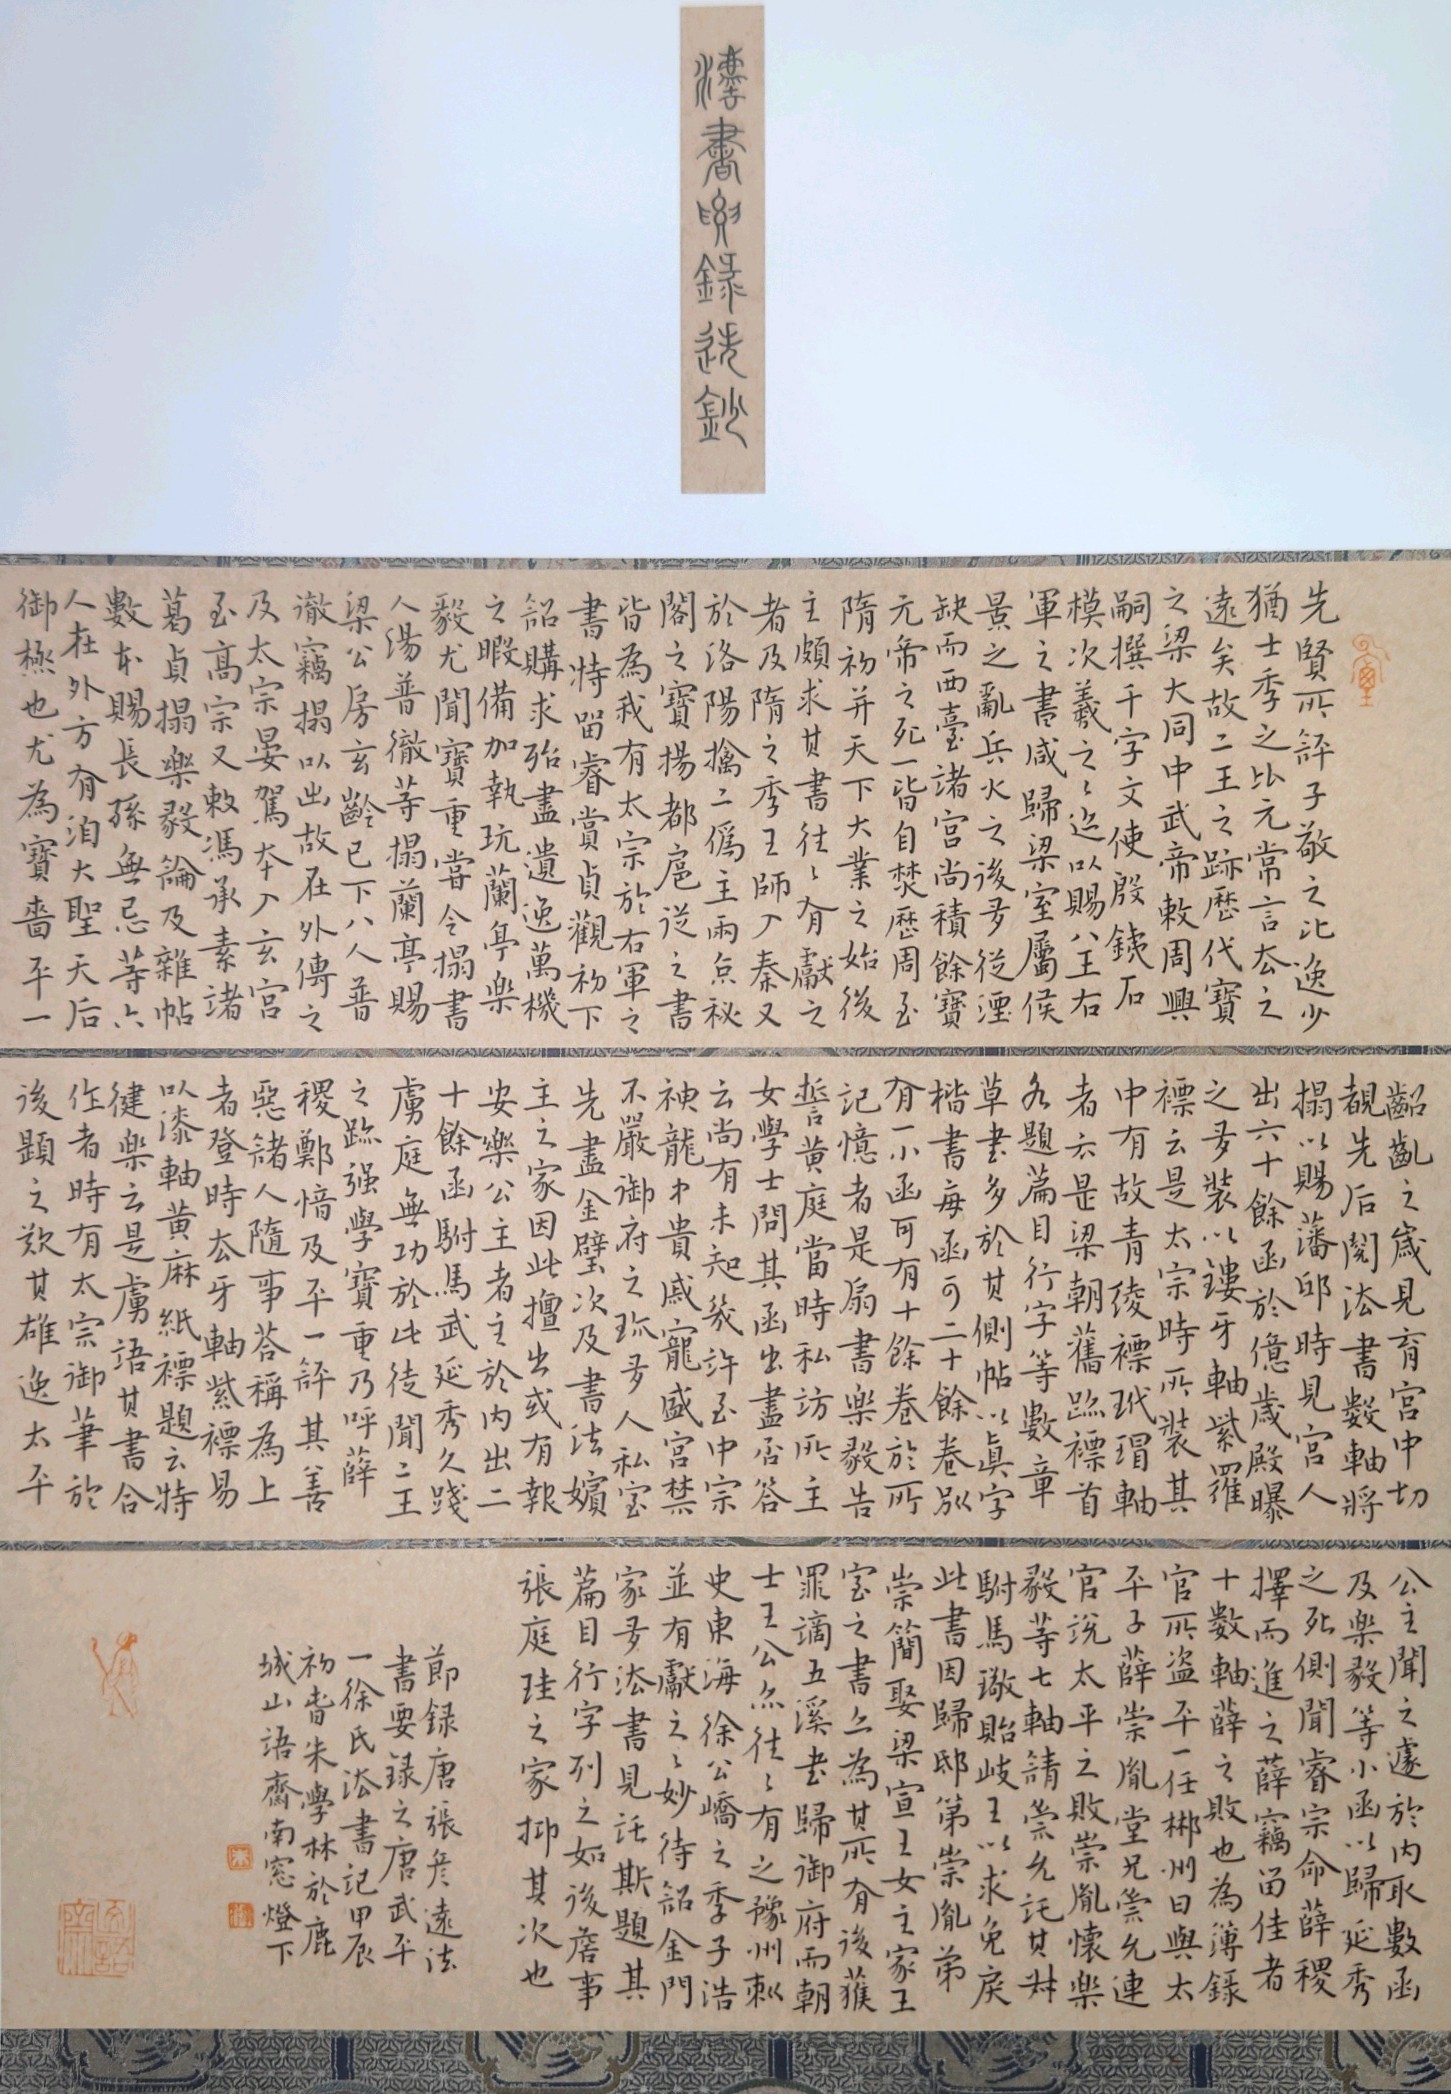 法書要録选鈔
先賢所評子敬之比逸少
猶士季之比元常言去之
遠矣故二王之跡歷代寶
之梁大同中武帝敕周興
嗣撰千字文使殷鉄石
模次羲之之迹以賜八王右
軍之書咸歸梁室屬侯
景之亂兵火之後多從湮
缺而西臺諸宮尚積餘寶
元帝之死一皆自焚歷周至
隋初并天下大業之始後
主頗求其書往々有獻之
者及隋之季王師入秦又
於洛陽擒二偽主兩京秘
閣之寶揚都扈従之書
皆為我有太宗於右軍之
書特留睿賞貞觀初下
詔購求殆盡遺逸萬機
之暇備加執玩蘭亭樂
毅尤聞寶重嘗令搨書
人湯普徹等搨蘭亭賜
梁公房玄齡已下八人普
徹竊搨以出故在外傳之
及太宗晏駕本入玄宮
至高宗又敕馮承素諸
葛貞搨樂毅論及雜帖
數本賜長孫無忌等六
人在外方有洎大聖天后
御極也尤為寶嗇平一
齠齓之歲見育宮中切
覩先后閱法書數軸將
搨以賜藩邸時見宮人
出六十餘函於億歲殿曝
之多裝以鏤牙軸紫羅
褾云是太宗時所裝其
中有故青綾褾玳瑁軸
者云是梁朝舊跡褾首
各題篇目行字等數章
草書多於其側帖以真字
楷書每函可二十餘卷別
有一小函可有十餘卷於所
記憶者是扇書樂毅告
誓黃庭當時私訪所主
女學士問其函出盡否答
云尚有未知幾許至中宗
神龍中貴戚寵盛宮禁
不嚴御府之珎多人私室
先盡金璧次及書法嬪
主之家因此擅出或有報
安樂公主者主於內出二
十餘函駙馬武延秀久踐
虜庭無功於此徒聞二王
之跡强學寶重乃呼薛
稷鄭愔及平一評其善
惡諸人隨事荅稱為上
者登時去牙軸紫褾易
以漆軸黃麻紙褾題云特
健樂云是虜語其書合
作者時有太宗御筆於
後題之欵其雄逸太平
公主聞之遽於內取數函
及樂毅等小函以歸延秀
之死側聞睿宗命薛稷
擇而進之薛竊留佳者
十數軸薛之敗也為簿録
官所盜平一任郴州日與太
平子薛崇胤堂兄崇允連
官説太平之敗崇胤懷樂
毅等七軸請崇允託其叔
駙馬璥貽岐王以求免戾
此書因歸邸第崇胤弟
崇簡娶梁宣王女主家王
室之書亦為其所有後獲
罪謫五溪書歸御府而朝
士王公亦往々有之豫州刺
史東海徐公嶠之季子浩
並有獻之之妙待詔金門
家多法書見託斯題其
篇目行字列之如後詹事
張庭珪之家抑其次也
節録唐張彥遠法
書要録之唐武平
一徐氏法書記甲辰
初春朱學林於鹿
城山語齋南窓燈下